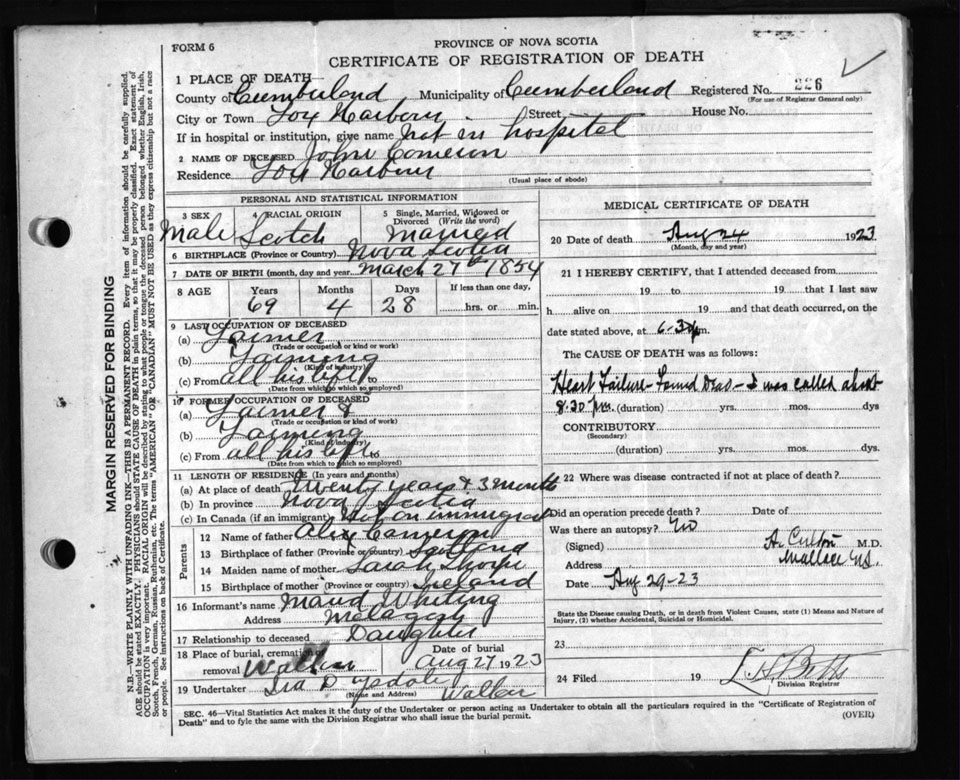 MARGIN RESERVED FOR BINDING
N.B.—WRITE PLAINLY WITH UNFADING INK—THIS IS A PERMANENT RECORD. Every item of information should be carefully supplied.
AGE should be stated EXACTLY. PHYSICIANS should STATE CAUSE OF DEATH in plain terms, so that it may be properly classified. Exact statement of
OCCUPATION is very important. RACIAL ORIGIN will be described by stating to what people or tongue the deceased person belonged whether English, Irish,
Scotch, French, German, Russian, Ruthenian, etc. The terms "AMERICAN" OR "CANADIAN" MUST NOT BE USED as they express citizenship but not a race
or people. See instructions on back of Certificate.
FORM 6
PROVINCE OF NOVA SCOTIA
CERTIFICATE OF REGISTRATION OF DEATH
1 PLACE OF DEATH
County of Cumberland Municipality of Cumberland Registered No. 226
(For use of Registrar General only)
City or Town Fox Harbour Street House No.
If in hospital or institution, give name not in hospital
2 NAME OF DECEASED John Cameron
Residence Fox Harbour
(Usual place of abode)
PERSONAL AND STATISTICAL INFORMATION
3 SEX 4 RACIAL ORIGIN 5 Single, Married, Widowed or Divorced (Write the word)
Male Scotch Married
6 BIRTHPLACE (Province or Country) Nova Scotia
7 DATE OF BIRTH (month, day and year) March 27th 1854
8 AGE Years Months Days If less than one day,
69 4 28 hrs. or min.
9 LAST OCCUPATION OF DECEASED
(a) Farmer
(Trade or occupation or kind or work)
(b) Farming
(Kind of industry)
(c) From all his life to
(Date from which to which so employed)
10 FORMER OCCUPATION OF DECEASED
(a) Farmer &
(Trade or occupation or kind of work)
(b) Farming
(Kind of industry)
(c) From all his life to
(Date from which to which so employed)
11 LENGTH OF RESIDENCE (In years and months)
(a) At place of death twenty years & 3 month
(b) In province Nova Scotia
(c) In Canada (if an immigrant) Not an immigrant
Parents
12 Name of father Alex Cameron
13 Birthplace of father (Province or country) Scotland
14 Maiden name of mother Sarah
15 Birthplace of mother (Province or country) Ireland
16 Informant's name Maud Whiting
Address Malagash
17 Relationship to deceased Daughter
18 Place of burial, cremation, removal Wallace Date of burial Aug 27 1923
19 Undertaker Ira D Wallace
(Name and Address)
MEDICAL CERTIFICATE OF DEATH
20 Date of death Aug 24 1923
(Month, day and year)
21 I HEREBY CERTIFY, that I attended deceased from
19 to 19 that I last saw
h alive on 19 and that death occurred, on the
date stated above, at 6-30 p m.
The CAUSE OF DEATH was as follows:
Heart Failure - Found Dead - I was called about
8.30 p.m. (duration) yrs. mos. dys
CONTRIBUTORY
(Secondary)
(duration) yrs. mos. dys.
22 Where was disease contracted if not at place of death?
Did an operation precede death? Date of
Was there an autopsy? No
(Signed) M.D.
Address Wallace NS.
Date Aug 29-23
State the Disease causing Death, or in death from Violent Causes, state (1) Means and Nature of
Injury, (2) whether Accidental, Suicidal or Homicidal.
23
24 Filed 19
Division Registrar
SEC. 46—Vital Statistics Act makes it the duty of the Undertaker or person acting as Undertaker to obtain all the particulars required in the "Certificate of Registration of
Death" and to fyle the same with the Division Registrar who shall issue the burial permit.
(OVER)